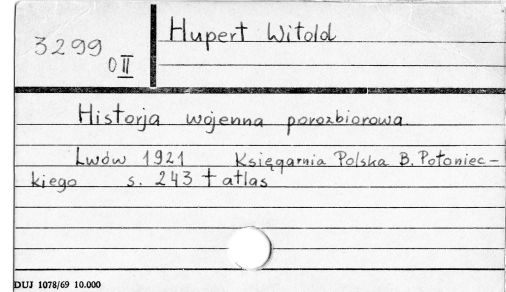 Hupert Witold
3299
O II
Historja wojenna porozbiorowa.
Lwów 1921 Księgarnia Polska B. Połoniec-
kiego s. 243 + atlas
DUJ 1078/69 10.000